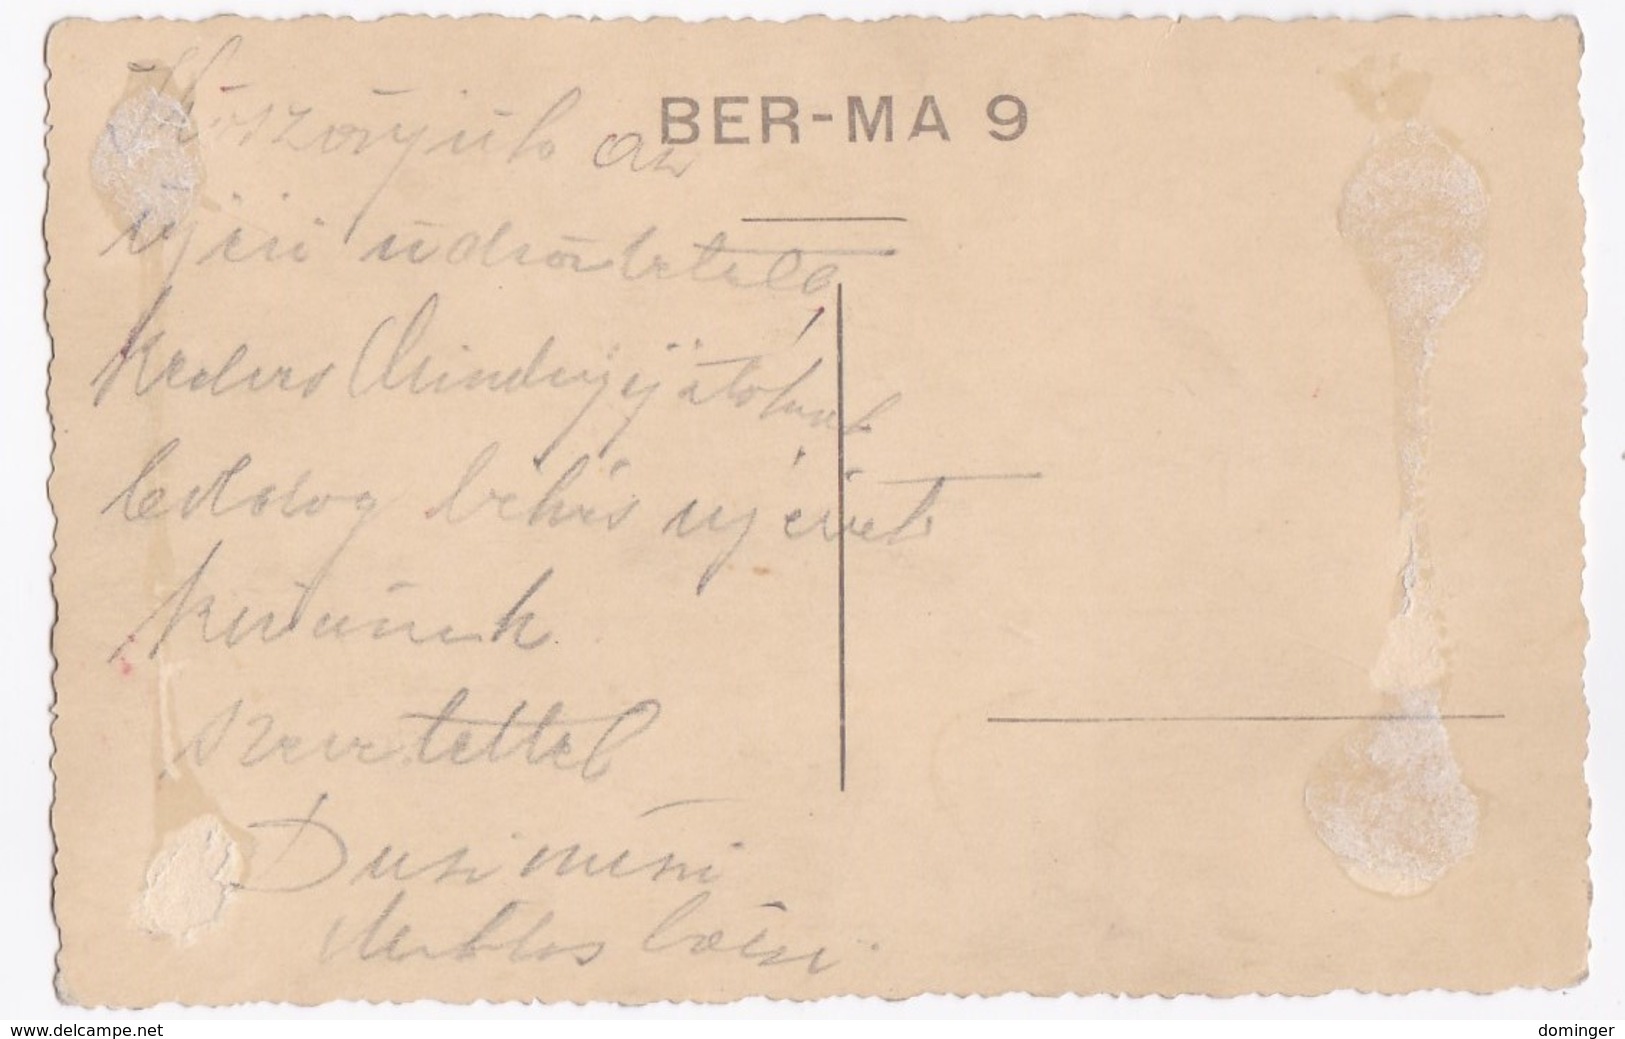 BER-MA 9
Köszönjük az
ujévi üdvözletet
kedves Mindnyájatoknak
boldog békés ujévet
kivánunk
szeretettel
Dusi néni
Miklos bácsi.
www.delcampe.net
dominger